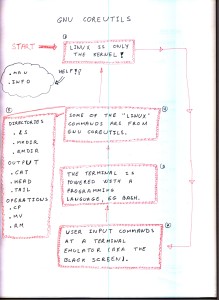 GNU COREUTILS
START
①
LINUX IS ONLY
THE KERNEL!
HELP!!
. MAN
. INFO
DIRECTORIES
. LS
. MKDIR
. RMDIR
OUTPUT
. CAT
. HEAD
. TAIL
OPERATIONS
. CP
. MV
. RM
SOME OF THE "LINUX"
COMMANDS ARE FROM
GNU COREUTILS.
THE TERMINAL IS
POWERED WITH A
PROGRAMMING
LANGUAGE, EG BASH.
USER INPUT COMMANDS
AT A TERMINAL
EMULATOR (AKA THE
BLACK SCREEN).